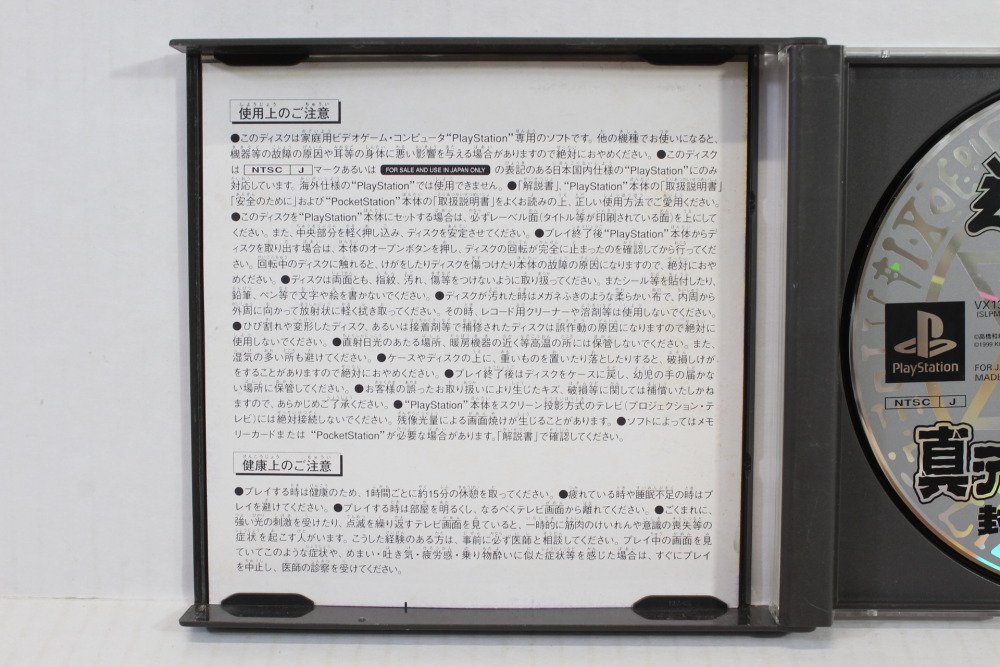 使用上のご注意
●このディスクは家庭用ビデオゲーム・コンピュータ“PlayStation”専用のソフトです。他の機種でお使いになると、
機器等の故障の原因や耳等の身体に悪い影響を与える場合がありますので絶対におやめください。●このディスク
は NTSC J マークあるいは FOR SALE AND USE IN JAPAN ONLY の表記のある日本国内仕様の“PlayStation”にのみ
対応しています。海外仕様の“PlayStation”では使用できません。●「解説書」、“PlayStation”本体の「取扱説明書」
「安全のために」および“PocketStation”本体の「取扱説明書」をよくお読みの上、正しい使用方法でご愛用ください。
●このディスクを“PlayStation”本体にセットする場合は、必ずレーベル面(タイトル等が印刷されている面)を上にして
ください。また、中央部分を軽く押し込み、ディスクを安定させてください。●プレイ終了後“PlayStation”本体からデ
ィスクを取り出す場合は、本体のオープンボタンを押し、ディスクの回転が完全に止まったのを確認してから行ってくだ
さい。回転中のディスクに触れると、けがをしたりディスクを傷つけたり本体の故障の原因になりますので、絶対におや
めください。●ディスクは両面とも、指紋、汚れ、傷等をつけないように取り扱ってください。またシール等を貼付したり、
鉛筆、ペン等で文字や絵を書かないでください。●ディスクが汚れた時はメガネふきのような柔らかい布で、内周から
外周に向かって放射状に軽く拭き取ってください。その時、レコード用クリーナーや溶剤等は使用しないでください。
●ひび割れや変形したディスク、あるいは接着剤等で補修されたディスクは誤作動の原因になりますので絶対に
使用しないでください。●直射日光のあたる場所、暖房機器の近く等高温の所には保管しないでください。また、
湿気の多い所も避けてください。●ケースやディスクの上に、重いものを置いたり落としたりすると、破損しけが
をすることがありますので絶対におやめください。●プレイ終了後はディスクをケースに戻し、幼児の手の届かな
い場所に保管してください。●お客様の誤ったお取り扱いにより生じたキズ、破損等に関しては補償いたしかね
ますので、あらかじめご了承ください。●“PlayStation”本体をスクリーン投影方式のテレビ(プロジェクション・テ
レビ)には絶対接続しないでください。残像光量による画面焼けが生じることがあります。●ソフトによってはメモ
リーカードまたは “PocketStation”が必要な場合があります。「解説書」で確認してください。
健康上のご注意
●プレイする時は健康のため、1時間ごとに約15分の休憩を取ってください。●疲れている時や睡眠不足の時はプレ
イを避けてください。●プレイする時は部屋を明るくし、なるべくテレビ画面から離れてください。●ごくまれに、
強い光の刺激を受けたり、点滅を繰り返すテレビ画面を見ていると、一時的に筋肉のけいれんや意識の喪失等の
症状を起こす人がいます。こうした経験のある方は、事前に必ず医師と相談してください。プレイ中の画面を見
ていてこのような症状や、めまい・吐き気・疲労感・乗り物酔いに似た症状等を感じた場合は、すぐにプレイ
を中止し、医師の診察を受けてください。
PlayStation
NTSC J
真デ
封